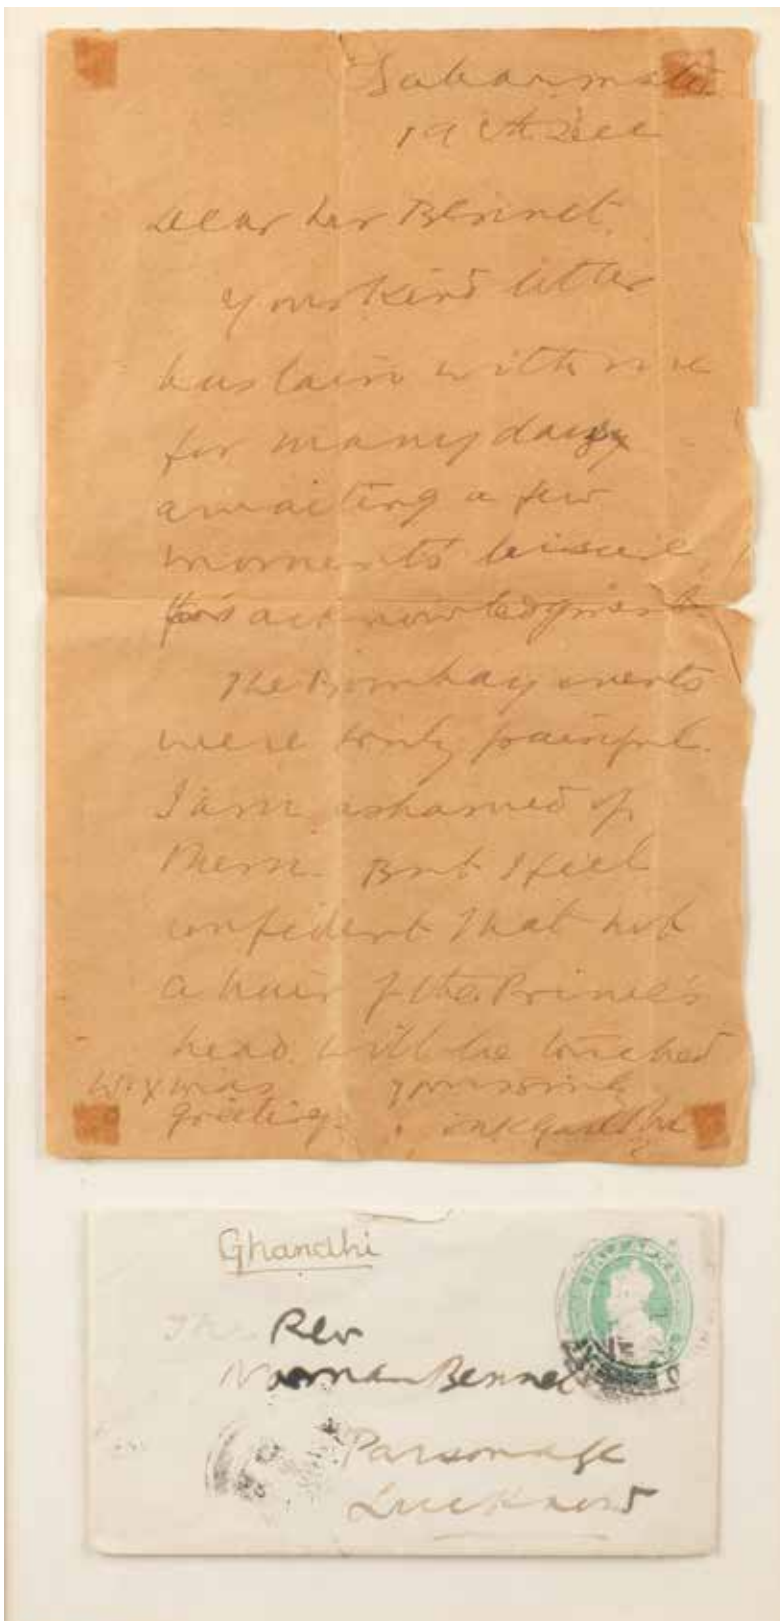 Sabarmati
19th Dec
Dear Mr Bennet,
Your kind letter
has lain with me
for many days
awaiting a few
moments' leisure,
for acknowledgment.
The Bombay events
were truly painful.
I am ashamed of
them. But I feel
confident that not
a hair of the Prince's
head will be touched
Yours sincerely
MKGandhi
Xmas
greetings
Ghandhi
The Rev
Norman Bennet
Parsonage
Lucknow